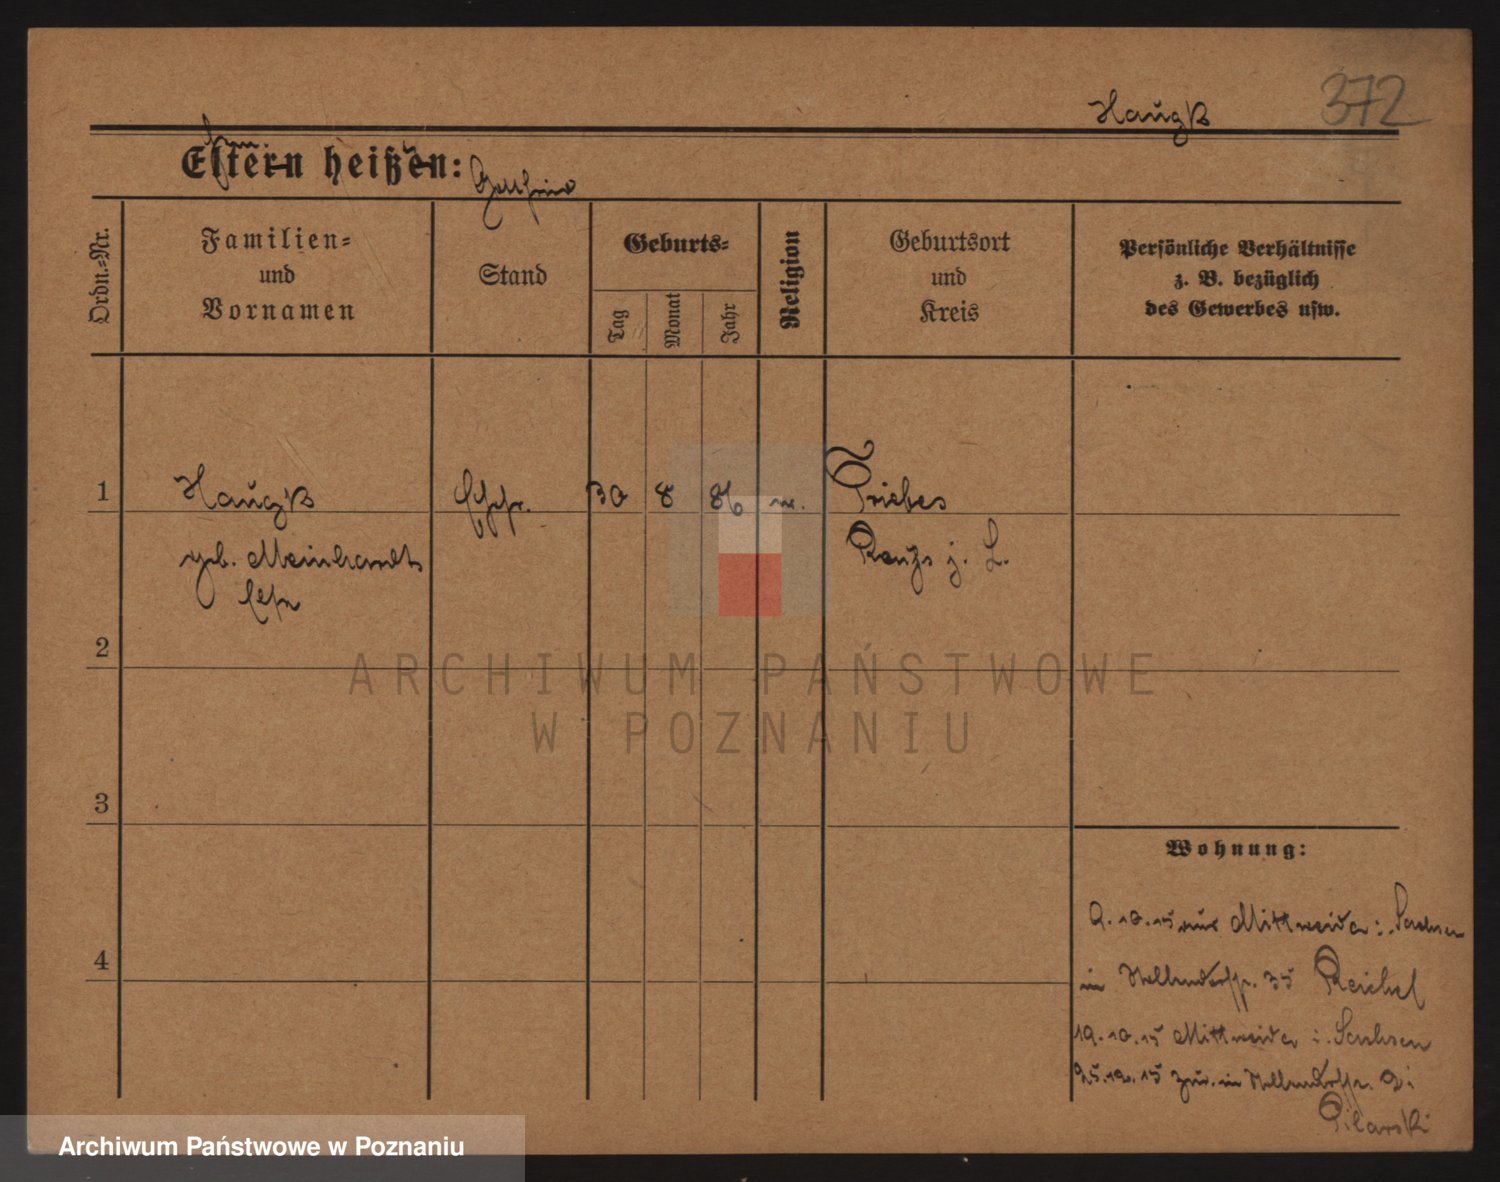 372
Haugk
Eltern heißen:
Ordn.-Nr.
Familien-
und
Vornamen
Stand
Geburts-
Tag
Monat
Jahr
Religion
Geburtsort
und
Kreis
Persönliche Verhältnisse
z. B. bezüglich
des Gewerbes usw.
1
Haugk
30
8
86
Triebes
geb. Meinhardt
Reuß j. L.
2
ARCHIWUM PAŃSTWOWE
W POZNANIU
3
Wohnung:
9.10.15 aus Mittweida i. Sachsen
in 35 Reichel
4
19.10.15 Mittweida i. Sachsen
25.10.15 zur. in
Pilarski
Archiwum Państwowe w Poznaniu